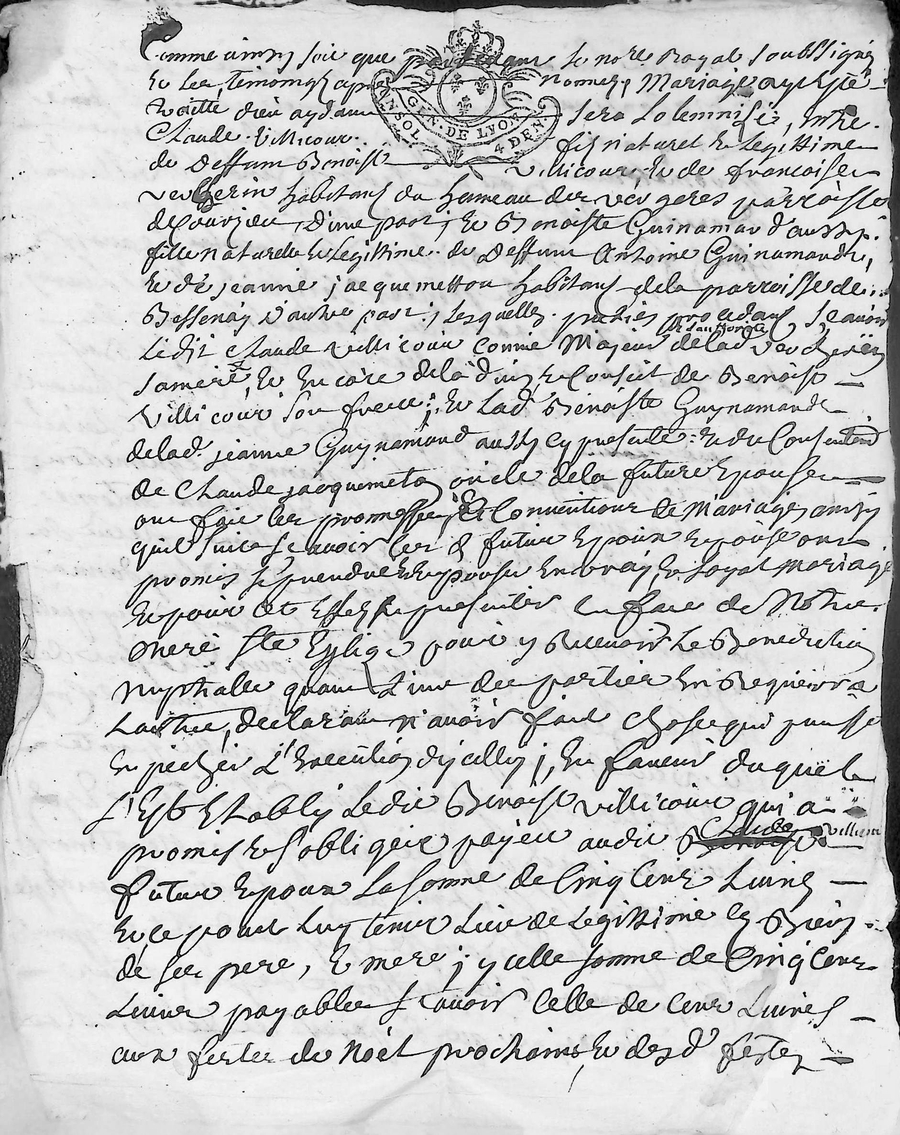 Comme ainsy soit que pardevant le nore Royal soubssigné
et les temoingz apres nomez Mariage aye esté
traitte dieu aydant sera solemnisé, entre
GEN. DE LYON
UN SOL 4 DEN.
Claude Villicour fils naturel et legittime
de deffunt Benoist Villicour et de francoise
vercherin habitans du hameau des vergeres parroisse
de Courzieu d'une part; et Benoiste Guinamand aussy
fille naturelle et legittime de deffunt Antoine Guinamande,
et de jeanne jacquemetton habitans de la parroisse de
Bessenay d'autre part; lesquelles parties procedans, scavoir
Ledit Claude Villicour comme Majeur de lad vercherin
sa mere, et encore de l'advis et Conseit de Benoist
Villicour son frere; et lad Benoiste Guynamande
de lad. jeanne Guynamand aussy cy presente et du Consentend
de Claude jacquemeton oncle de la future Epouse
ont fait les promesses et Conventions de Mariages ainsy
quil suit scavoir les d futur Epoux Epouse ont
promis se prendre et Epouser en vray et loyal Mariage
et pour cet effet se presenter en face de Notre
mere ste Eglise pour y Recevoir la Benediction
nuptialle quant L'une des parties en Requerra
Lautre, declarant n'avoir fait chose qui puisse
Enpecher L'Execution dicelluy; En faveur duquel
L'Est Etably Ledit Benoist Villicour qui a
promis et s'obliger payer audit Claude Villicour
futur Epoux La somme de Cinq Cent Livres
et ce pour luy tenir Lieu de legittime es Biens
de ses pere, et mere; ycelle somme de Cinq Cent
Livres payables scavoir Celle de cent Livres
aux festes de Noèl prochaines, et desd festes